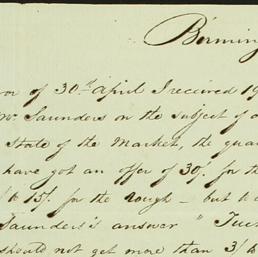 Birming
or of 30th April I received 19
Mr Saunders on the subject of o
State of the Market, the qua
have got an offer of 30/. for the
to 15/. for the rough – but to
Saunders's answer "
should not get more than 3/ t